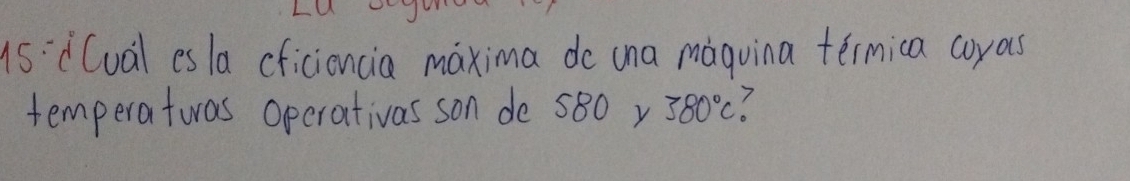 La segunda ley
15.- ¿Cuál es la eficiencia máxima de una máquina térmica cuyas
temperaturas operativas son de 580 y 380°c?